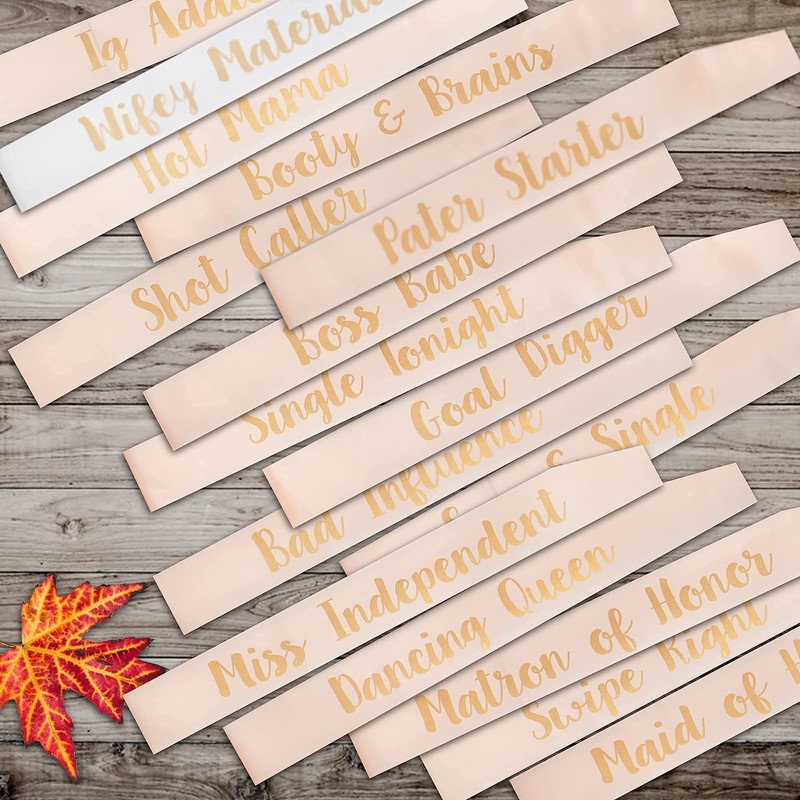 Ig Addic
Wifey Material
Hot Mama
Booty & Brains
Pater Starter
Shot Caller
Boss Babe
Single Tonight
Goal Digger
Bad Influence
& Single
Miss Independent
Dancing Queen
Matron of Honor
Swipe Right
Maid of H